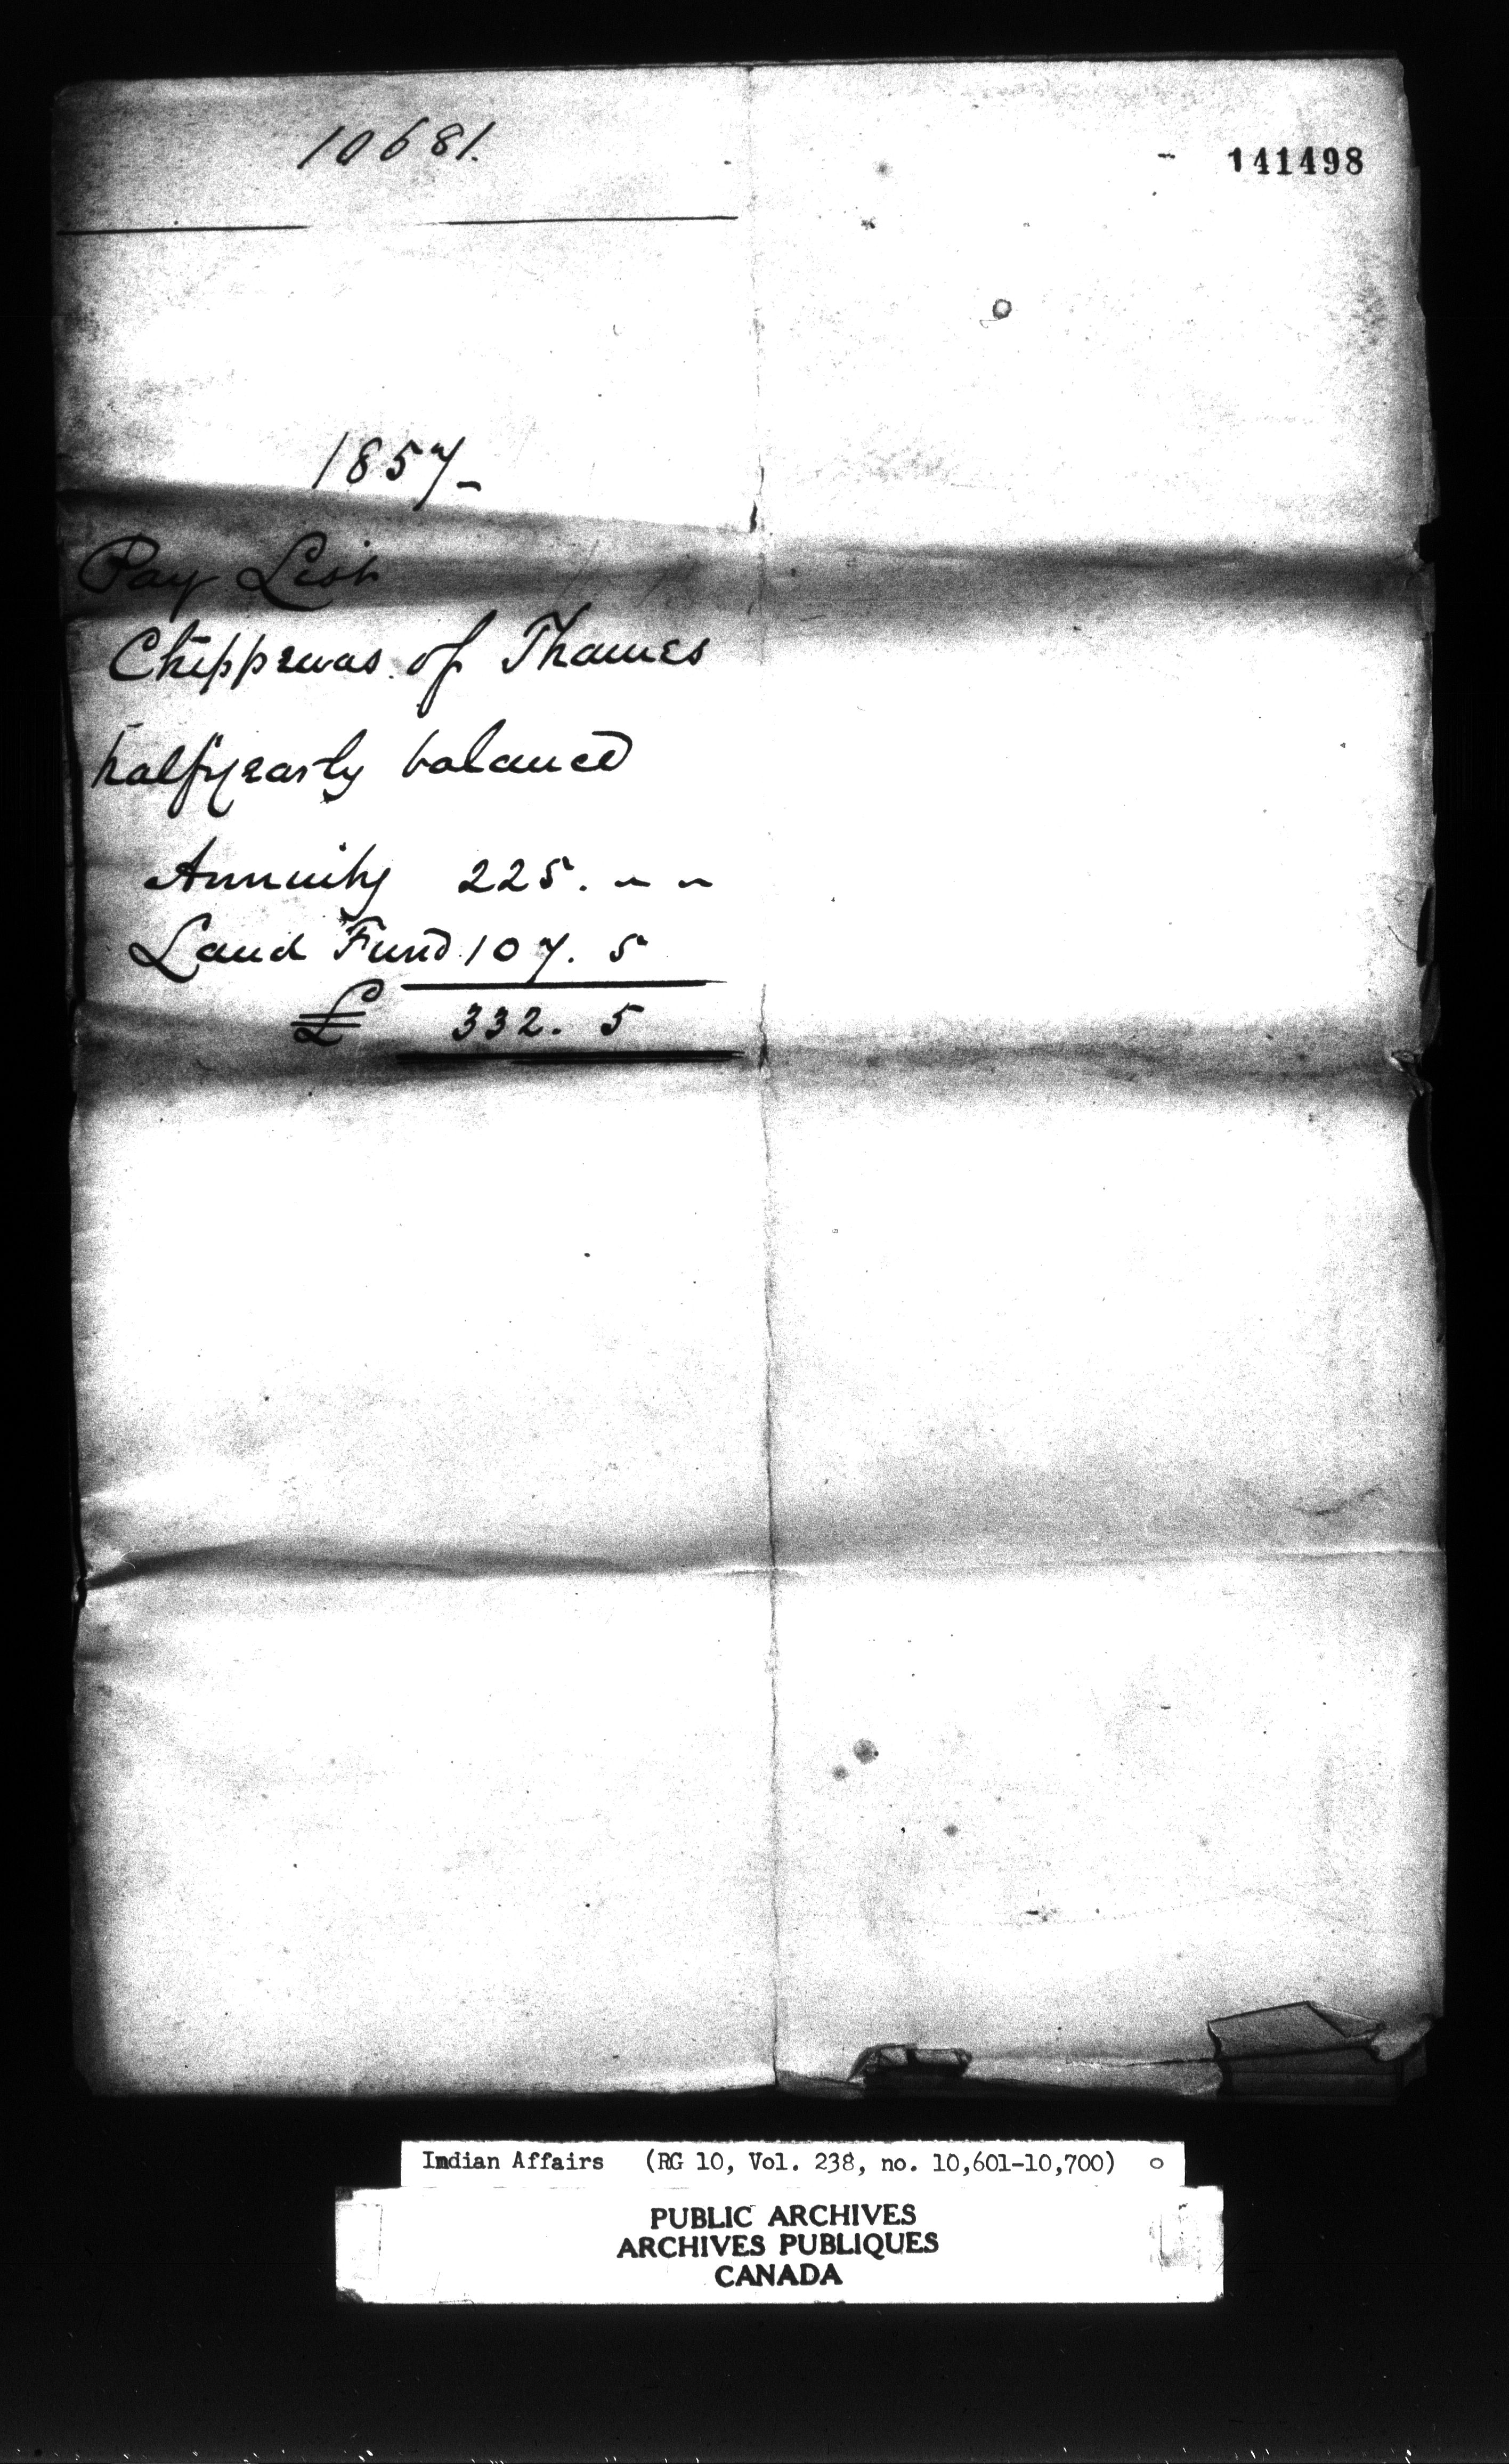 10681.
141498
1857-
Pay List
Chippewas of Thames
halfyearly balance
Annuity 225. - -
Land Fund 107. 5
£ 332. 5
Indian Affairs (RG 10, Vol. 238, no. 10,601-10,700)
PUBLIC ARCHIVES
ARCHIVES PUBLIQUES
CANADA